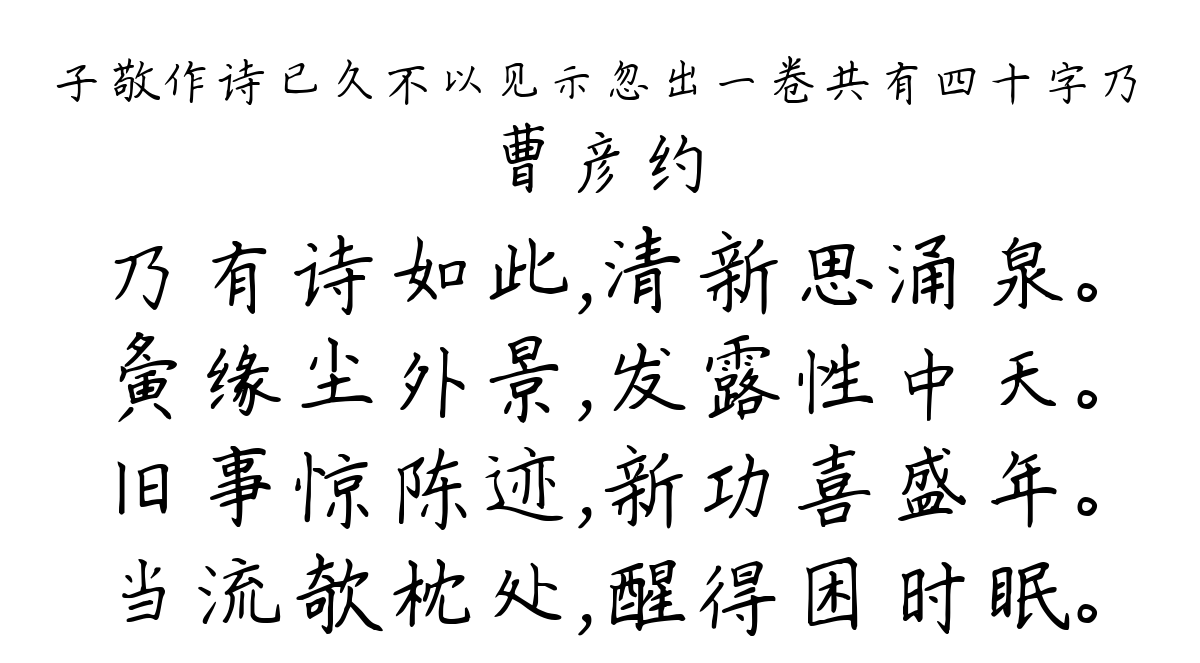 子敬作诗已久不以见示忽出一卷共有四十字乃
曹彦约
乃有诗如此,清新思涌泉。
夤缘尘外景,发露性中天。
旧事惊陈迹,新功喜盛年。
当流欹枕处,醒得困时眠。